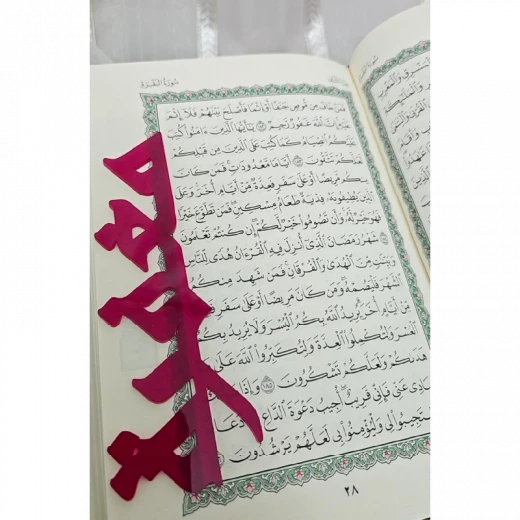 سُورَةُ البَقَرَةِ
فَمَنْ خَافَ مِن مُّوصٍ جَنَفًا أَوْ إِثْمًا فَأَصْلَحَ بَيْنَهُمْ فَلَآ إِثْمَ
عَلَيْهِ إِنَّ ٱللَّهَ غَفُورٌ رَّحِيمٌ ١٨٢ يَٰٓأَيُّهَا ٱلَّذِينَ ءَامَنُوا۟ كُتِبَ
عَلَيْكُمُ ٱلصِّيَامُ كَمَا كُتِبَ عَلَى ٱلَّذِينَ مِن قَبْلِكُمْ
لَعَلَّكُمْ تَتَّقُونَ ١٨٣ أَيَّامًا مَّعْدُودَٰتٍ فَمَن كَانَ
مِنكُم مَّرِيضًا أَوْ عَلَىٰ سَفَرٍ فَعِدَّةٌ مِّنْ أَيَّامٍ أُخَرَ وَعَلَى
ٱلَّذِينَ يُطِيقُونَهُۥ فِدْيَةٌ طَعَامُ مِسْكِينٍ فَمَن تَطَوَّعَ خَيْرًا
فَهُوَ خَيْرٌ لَّهُۥ وَأَن تَصُومُوا۟ خَيْرٌ لَّكُمْ إِن كُنتُمْ تَعْلَمُونَ
١٨٤ شَهْرُ رَمَضَانَ ٱلَّذِىٓ أُنزِلَ فِيهِ ٱلْقُرْءَانُ هُدًى لِّلنَّاسِ
وَبَيِّنَٰتٍ مِّنَ ٱلْهُدَىٰ وَٱلْفُرْقَانِ فَمَن شَهِدَ مِنكُمُ
ٱلشَّهْرَ فَلْيَصُمْهُ وَمَن كَانَ مَرِيضًا أَوْ عَلَىٰ سَفَرٍ
مِّنْ أَيَّامٍ أُخَرَ يُرِيدُ ٱللَّهُ بِكُمُ ٱلْيُسْرَ وَلَا يُرِيدُ بِكُمُ
ٱلْعُسْرَ وَلِتُكْمِلُوا۟ ٱلْعِدَّةَ وَلِتُكَبِّرُوا۟ ٱللَّهَ عَلَىٰ
هَدَىٰكُمْ وَلَعَلَّكُمْ تَشْكُرُونَ ١٨٥ وَإِذَا
عِبَادِى عَنِّى فَإِنِّى قَرِيبٌ أُجِيبُ دَعْوَةَ ٱلدَّاعِ دَعَانِ
فَلْيَسْتَجِيبُوا۟ لِى وَلْيُؤْمِنُوا۟ بِى لَعَلَّهُمْ يَرْشُدُونَ
٢٨